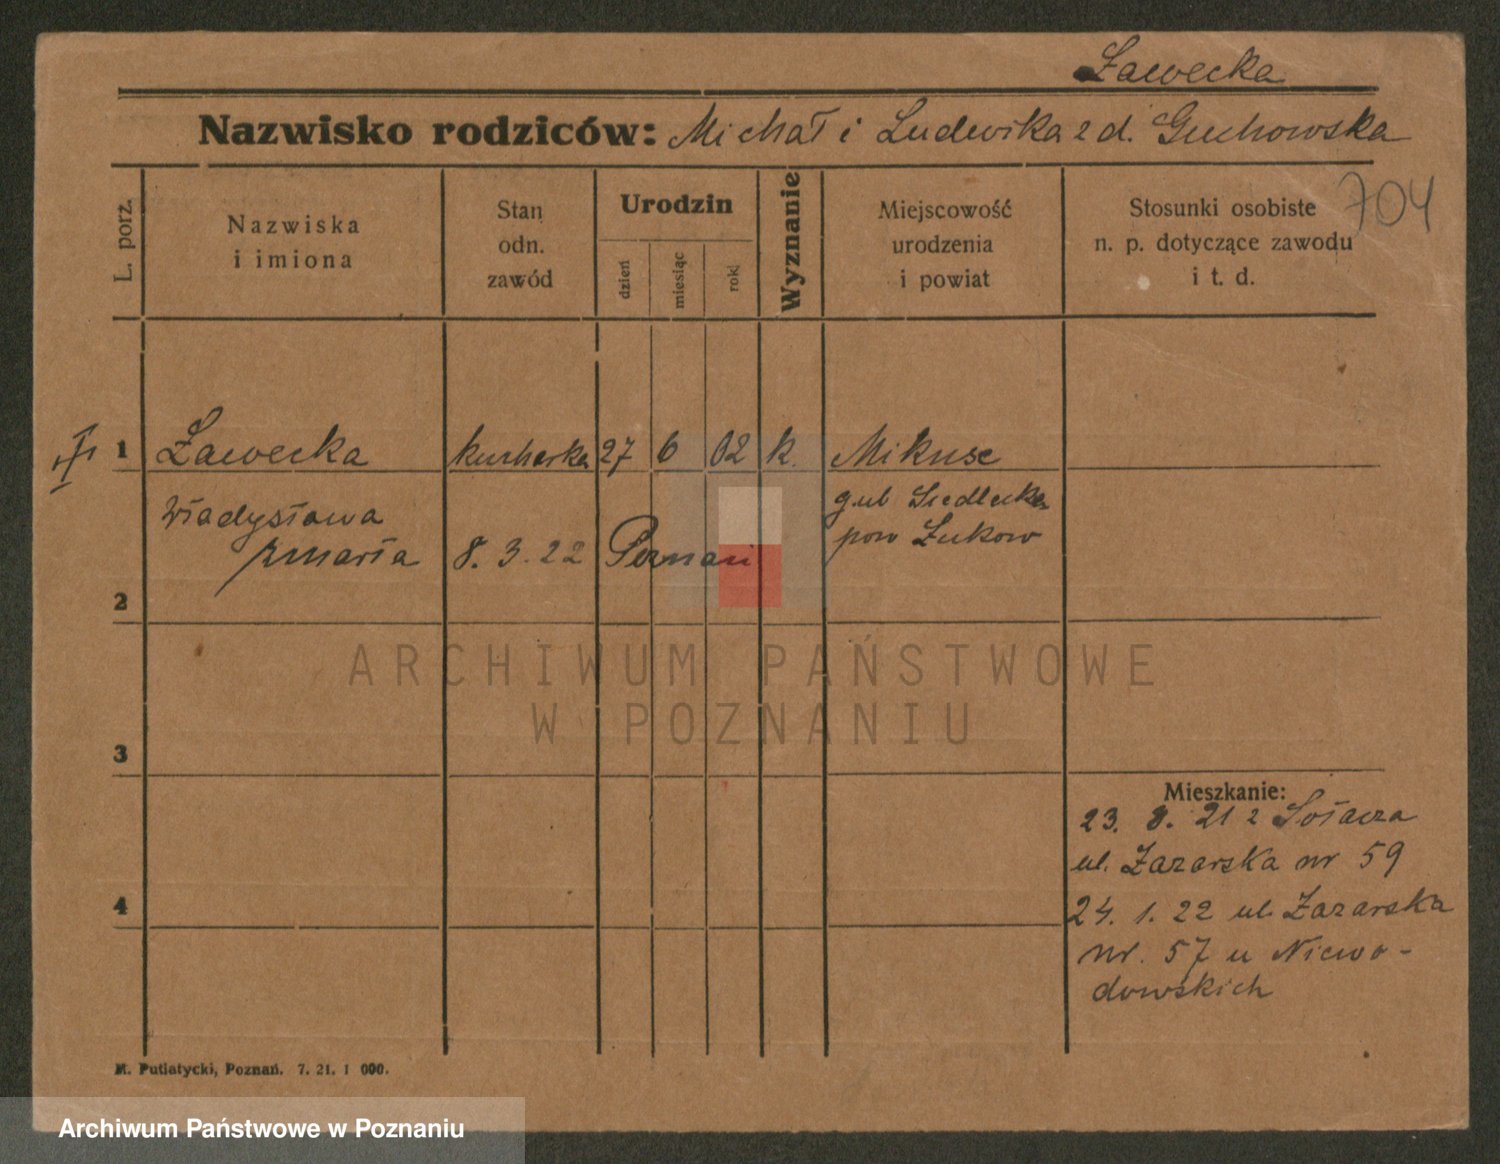 Ławecka
Nazwisko rodziców: Michał i Ludwika z d. Guchowska
704
L. porz.
Nazwiska
i imiona
Stan
odn.
zawód
Urodzin
dzień
miesiąc
rok
Wyznanie
Miejscowość
urodzenia
i powiat
Stosunki osobiste
n. p. dotyczące zawodu
i t. d.
1 Ławecka kucharka 27 6 02 k. Mikuse
Władysława gub Siedlecka
zmarła 8. 3. 22 Poznań pow Łukow
2
3
4
Mieszkanie:
23. 8. 21 z Sołacza
ul. Łazarska nr 59
24. 1. 22 ul. Łazarska
nr. 57 u Niewo-
dowskich
M. Putiatycki, Poznań. 7. 21. 1 000.
ARCHIWUM PAŃSTWOWE
W POZNANIU
Archiwum Państwowe w Poznaniu